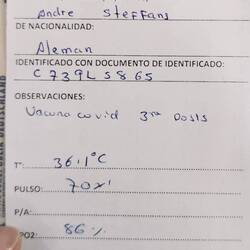 Andre Steffans
DE NACIONALIDAD:
Aleman
IDENTIFICADO CON DOCUMENTO DE IDENTIFICADO:
C739LS865
OBSERVACIONES:
Vacuna covid 3ra Dosis
T° 36.1°C
PULSO: 70x'
P/A:
PO2: 86%